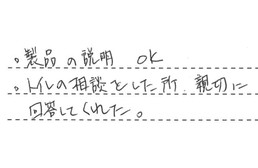 。製品の説明 OK
。トイレの相談をした所、親切に
回答してくれた。